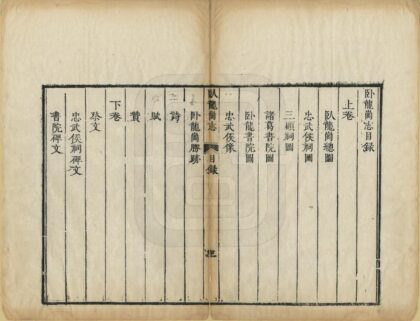 臥龍崗志目錄
上卷
臥龍崗總圖
忠武侯祠圖
三顧祠圖
諸葛書院圖
臥龍書院圖
忠武侯像
臥龍崗志 目錄
臥龍崗勝跡
詩
賦
贊
下卷
祭文
忠武侯祠碑文
書院碑文